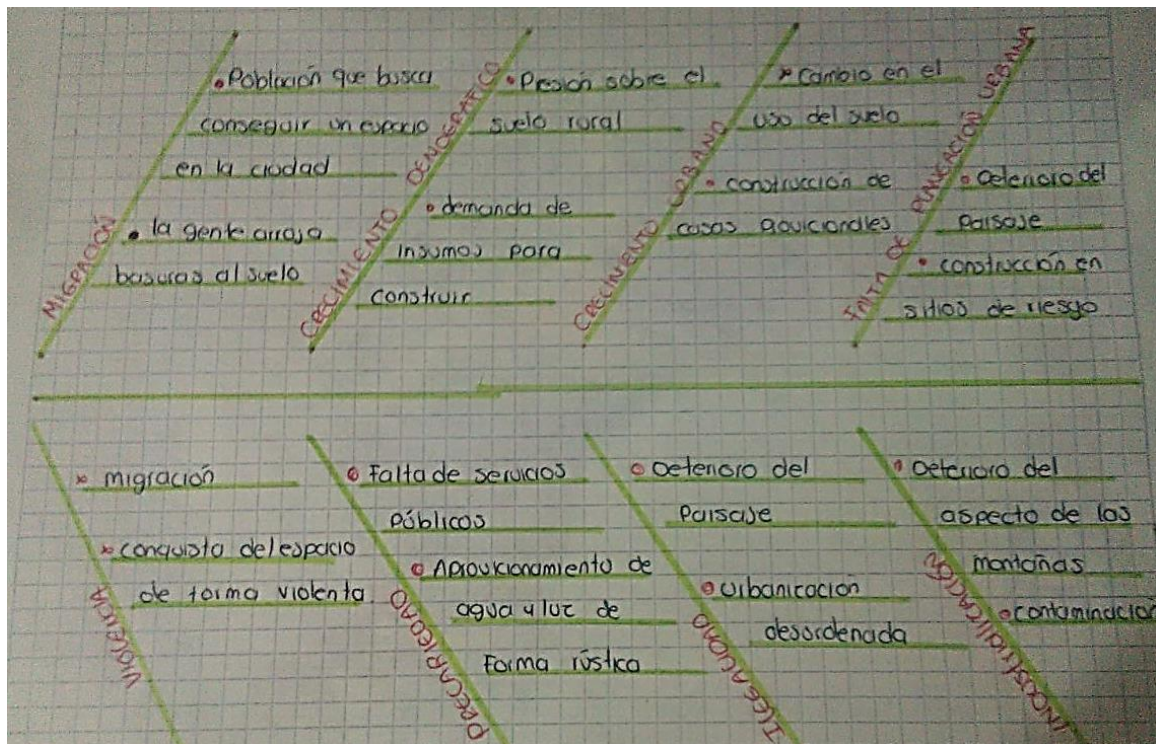 MIGRACIÓN
• Población que busca
conseguir un espacio
en la ciudad
• la gente arroja
basuras al suelo
CRECIMIENTO DEMOGRAFICO
• Presión sobre el
suelo rural
• demanda de
insumos para
construir
CRECIMIENTO URBANO
× Cambio en el
uso del suelo
• construcción de
casas adicionales
FALTA DE PLANEACIÓN URBANA
• Deterioro del
paisaje
• construcción en
sitios de riesgo
VIOLENCIA
× migración
× conquista del espacio
de forma violenta
PRECARIEDAD
• Falta de servicios
Públicos
• Aprovicionamiento de
agua y luz de
Forma rústica
ILEGALIDAD
• Deterioro del
Paisaje
• Urbanicación
desordenada
INDUSTRIALIZACIÓN
• Deterioro del
aspecto de las
montañas
• contaminación